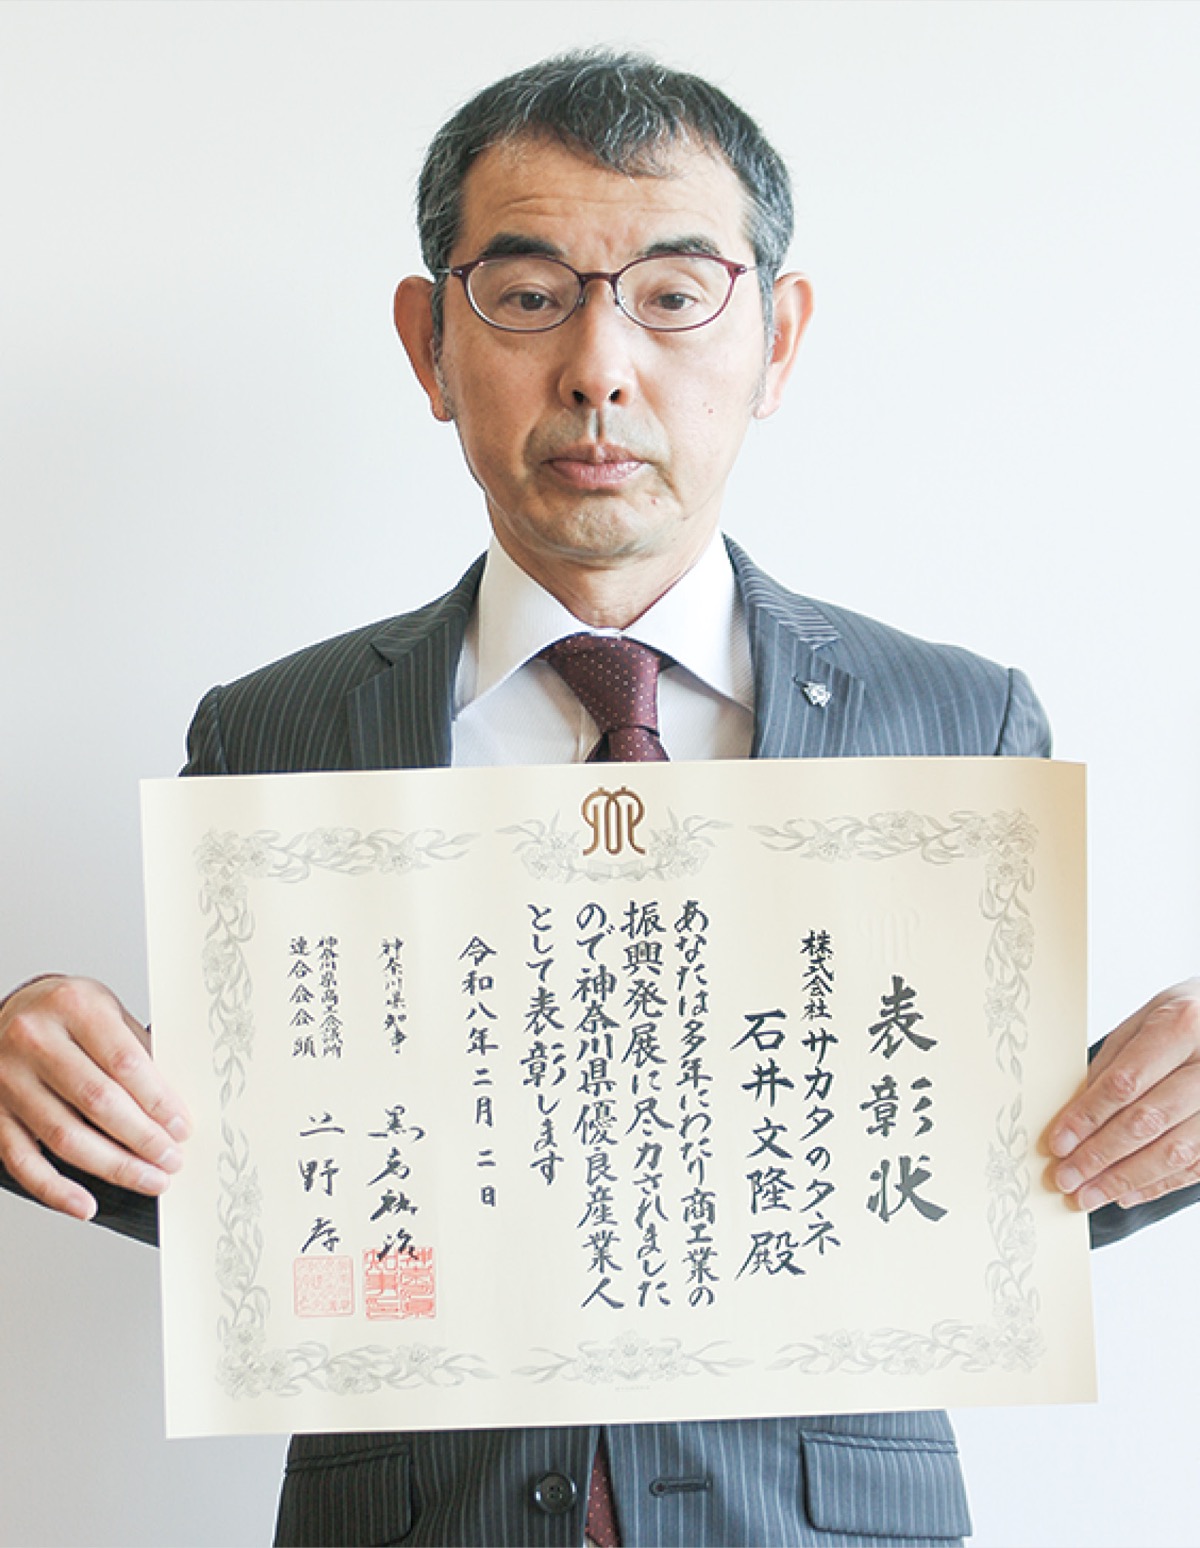 表彰状
株式会社サカタのタネ
石井文隆殿
あなたは多年にわたり商工業の
振興発展に尽力されました
ので神奈川県優良産業人
として表彰します
令和八年二月二日
神奈川県知事 黒岩祐治
神奈川県商工会議所
連合会会頭 上野孝